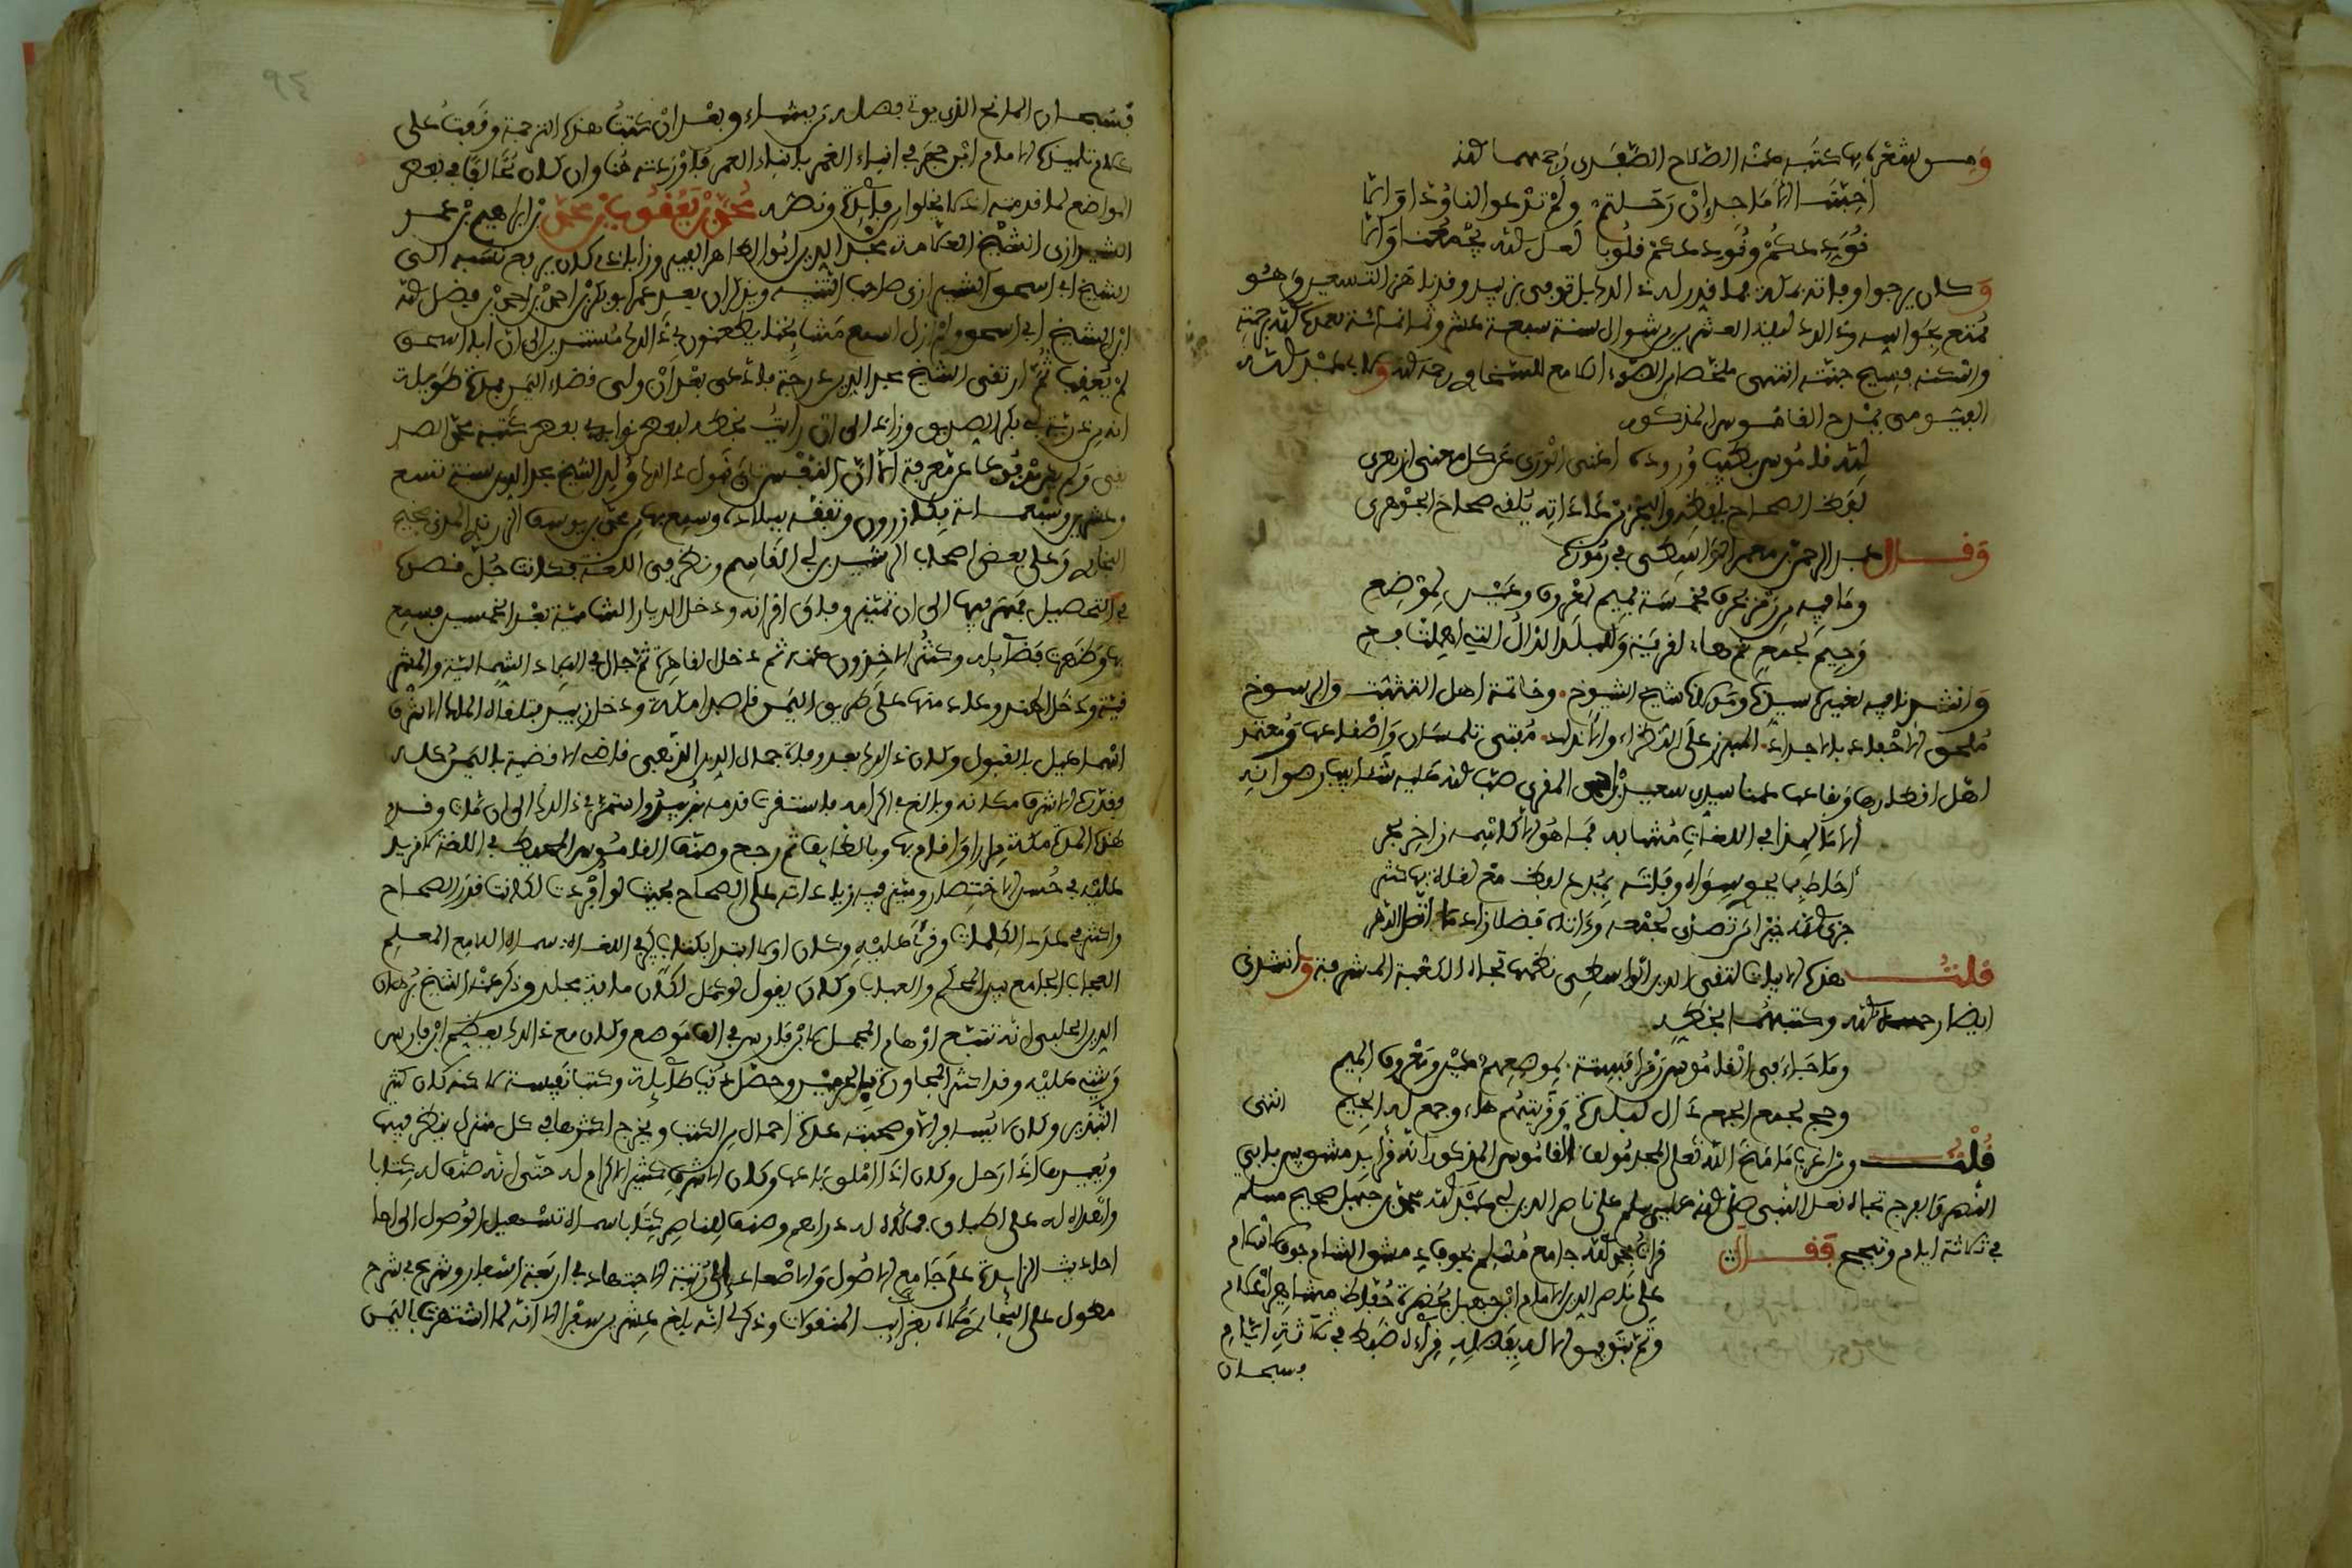 ومن شعره مما كتبه عنه الصلاح الصفدي رحمهما الله
أحبتنا الأماجد إن رحلتم ولم ترعوا لنا عهدا وإلا
نودعكم ونودعكم قلوبا لعل الله يجمعنا وإلا
وكان يرجو وفاته بمكة فما قدر له ذلك بل توفي بزبيد وقد ناهز التسعين وهو
ممتع بحواسه وذلك ليلة العشرين من شوال سنة سبعة عشر وثمانمائة تغمده الله برحمته
وأسكنه فسيح جنته انتهى ملخصا من الضوء اللامع للسخاوي رحمه الله ولأبي عبد الله
الفيومي يمدح القاموس المذكور
لله قاموس يطيب وروده أغنى الورى عن كل معنى أزهري
لفظ الصحاح بلفظه والبحر من عاداته يلقي صحاح الجوهري
وقال عبد الرحمن بن معمر الواسطي في رموزه
وما فيه من رمز بحرف فخمسة فميم لمعروف وعين لموضع
وجيم لجمع ثم هاء لقرية وللبلد الدال التي أهملت فعي
وأنشدنا فيه لغيره سيدي ومولاي شيخ الشيوخ وخاتمة أهل التثبت والرسوخ
ملحق الأحفاد بالأجداد المبرز على النظراء والأنداد مفتي تلمسان وأصقاعها ومعتمد
أهل أقطارها وبقاعها عمنا سيدي سعيد بن أحمد المقري صب الله عليه شآبيب رضوانه
ألا ما لهذا في اللغات مشابه فما هو إلا كاسمه زاخر بحر
أحاط بما يحوي سواه وفاته بمبدع لفظ مع لغات بها كثر
جزى الله خيرا من تصدى لجمعه وآتاه فضلا زائدا ما انقضى الدهر
قلت هذه الأبيات لتقي الدين الواسطي نظمها تجاه الكعبة المشرفة وأنشدني
أيضا رحمه الله وكتبهما بخطه
وما جاء في القاموس رمزا فستة لموضعهم عين ومعروف الميم
وجج لجمع الجمع دال لبلدة وقريتهم هاء وجمع له الجيم انتهى
قلت ومن أغرب ما منح الله تعالى المجد مؤلف القاموس المذكور أنه قرأ بدمشق بين بابي
النصر والفرج تجاه نعل النبي صلى الله عليه وسلم على ناصر الدين أبي عبد الله محمد بن جهبل صحيح مسلم
في ثلاثة أيام وتبجح فقال قرأت بحمد الله جامع مسلم بجوف دمشق الشام جوف إسلام
على ناصر الدين الإمام ابن جهبل بحضرة حفاظ مشاهير أعلام
وتم بتوفيق الإله بفضله قراءة ضبط في ثلاثة أيام
فسبحان
٩٤
فسبحان المانح الذي يوتي فضله من يشاء وبعد أن كتبت هذه الترجمة وقفت على
كلام تلميذه الإمام ابن حجر في إنباء الغمر بأنباء العمر فأوردته هنا وإن كان مخالفا في بعض
المواضع لما قدمته إذ لا يخلو من فائدة ونصه محمد بن يعقوب بن محمد بن إبراهيم بن عمر
الشيرازي الشيخ العلامة مجد الدين أبو الطاهر الفيروزابادي كان يرفع نسبه إلى
الشيخ أبي إسحق الشيرازي صاحب التنبيه ويذكر أن بعد عمر أبو بكر بن أحمد بن أحمد بن فضل الله
ابن الشيخ أبي إسحق ولم أزل أسمع مشايخنا يطعنون في ذلك مستندين إلى أن أبا إسحق
لم يعقب ثم ارتقى الشيخ مجد الدين درجة فادعى بعد أن ولي قضاء اليمن بمدة طويلة
أنه من ذرية أبي بكر الصديق وزاد إلى أن رأيت بخطه لبعض نوابه في بعض كتبه محمد الصد
يقي ولم يكن مدفوعا عن معرفة إلا أن النفس تأبى قبول ذلك ولد الشيخ مجد الدين سنة تسع
وعشرين وسبعمائة بكازرون وتفقه ببلاده وسمع بها من محمد بن يوسف الزرندي المدني صحيح
البخاري وعلى بعض أصحاب الرشيد بن أبي القاسم ونظر في اللغة فكانت جل قصده
في التحصيل فمهر فيها إلى أن تميز وفاق أقرانه ودخل الديار الشامية بعد الخمسين فسمع
بها وظهرت فضائله وكثر الآخذون عنه ثم دخل القاهرة ثم جال في البلاد الشمالية والمشر
قية ودخل الهند وعاد منها على طريق اليمن قاصدا مكة ودخل زبيد فتلقاه الملك الأشرف
إسماعيل بالقبول وكان ذلك بعد وفاة جمال الدين الريمي قاضي الأقضية باليمن كله
فقرره الأشرف مكانه وبالغ في إكرامه فاستقرت قدمه بزبيد واستمر في ذلك إلى أن مات وقدم
هذه المدة مكة مرارا وأقام بها وبالطائف ثم رجع وصنف القاموس المحيط في اللغة لا مزيد
عليه في حسن الاختصار وميز فيه زياداته على الصحاح بحيث لو أفردت لكانت قدر الصحاح
وأكثر في عدد الكلمات وقرئ عليه وكان أولا ابتدأ بكتاب كبير في اللغة سماه اللامع المعلم
العجاب الجامع بين المحكم والعباب وكان يقول لو كمل لكان مائة مجلد وذكر عنه الشيخ برهان
الدين الحلبي أنه تتبع أوهام المجمل لابن فارس في ألف موضع وكان مع ذلك يعظم ابن فارس
ويثني عليه وقد أكثر المجاورة بالحرمين وحصل دنيا طائلة وكتبا نفيسة لكنه كان كثير
التبذير وكان لا يسافر إلا وصحبته عدة أحمال من الكتب ويخرج أكثرها في كل منزل ينظر فيها
ويعيدها إذا رحل وكان إذا أملق باعها وكان الأشرف كثير الإكرام له حتى أنه صنف له كتابا
وأهداه له على أطباق فملأها له دراهم وصنف للناصر كتابا سماه تسهيل الوصول إلى الأحا
أحاديث الزائدة على جامع الأصول والإصعاد إلى رتبة الاجتهاد في أربعة أسفار وشرع في شرح
مطول على البخاري ملأه بغرائب المنقولات وذكر لي أنه بلغ عشرين سفرا إلا أنه لما اشتهرت باليمن